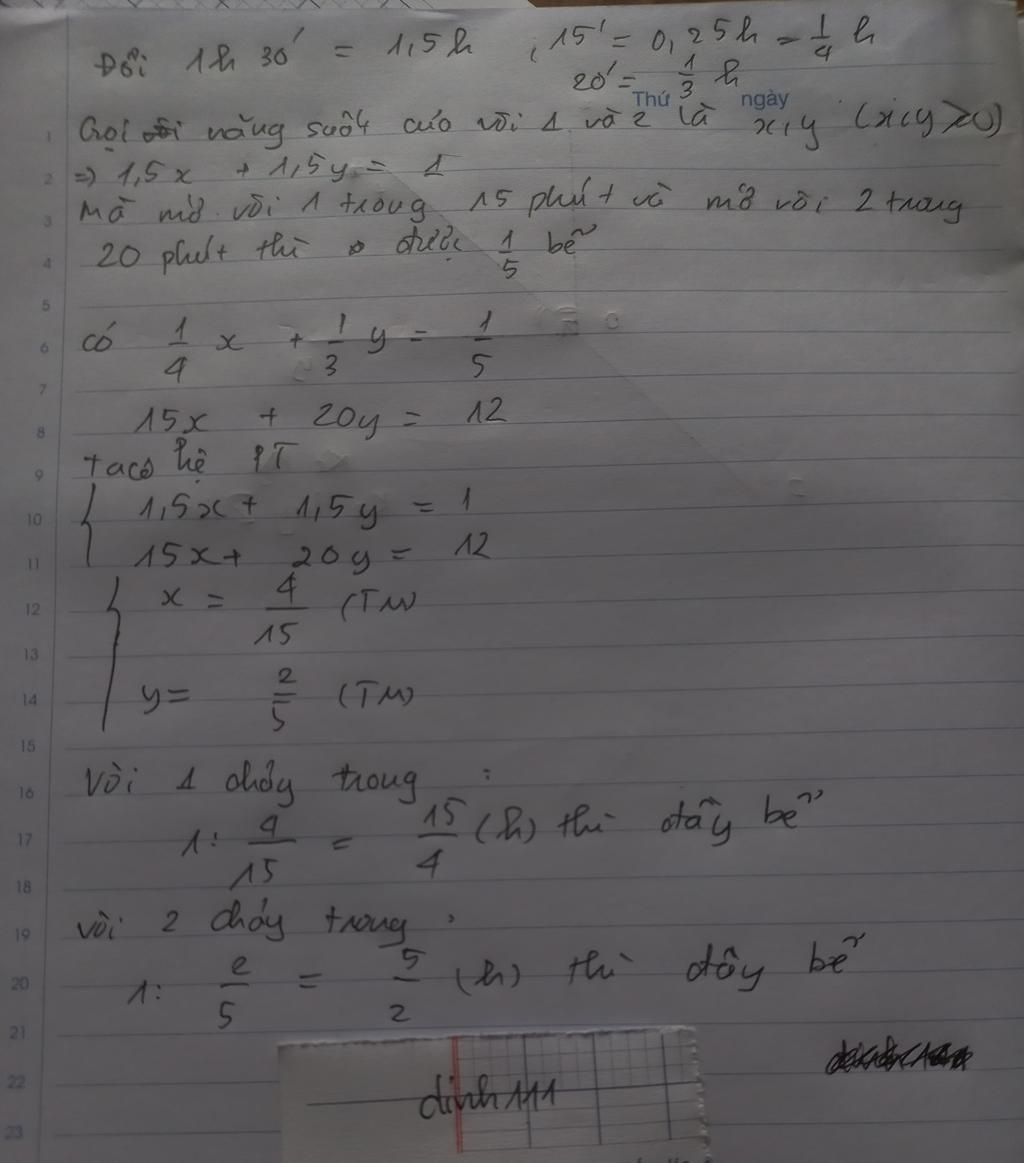 Đổi 1h 30' = 1,5h , 15' = 0,25h = 1/4 h
20' = 1/3 h
Thứ ngày
1 Gọi năng suất của vòi 1 và 2 là x,y (x,y >0)
2 => 1,5x + 1,5y = 1
3 Mà mở vòi 1 trong 15 phút và mở vòi 2 trong
4 20 phút thì được 1/5 bể
5
6 có 1/4 x + 1/3 y = 1/5
7
8 15x + 20y = 12
9 ta có hệ PT
10 { 1,5x + 1,5y = 1
11 15x + 20y = 12
12 { x = 4/15 (TM)
13
14 y = 2/5 (TM)
15
16 Vòi 1 chảy trong :
17 1: 4/15 = 15/4 (h) thì đầy bể
18
19 vòi 2 chảy trong :
20 1: 2/5 = 5/2 (h) thì đầy bể
21
22
dinh111
23